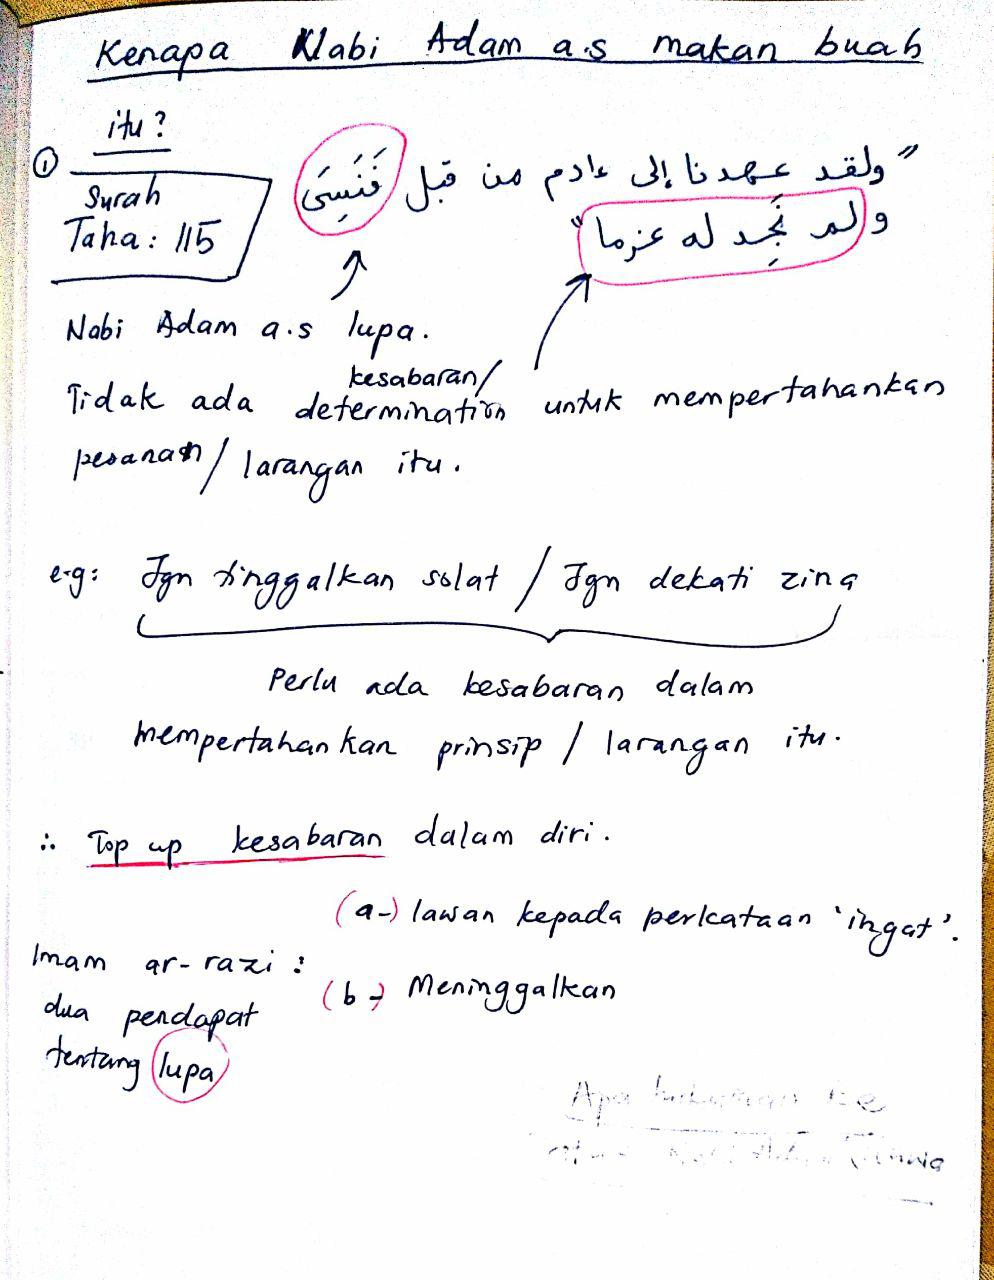 Kenapa Nabi Adam a.s makan buah
itu?
①
Surah
Taha: 115
"ولقد عهدنا إلى ءادم من قبل فَنَسِىَ
ولم نَجِد له عزما"
Nabi Adam a.s lupa.
kesabaran/
Tidak ada determination untuk mempertahankan
pesanan / larangan itu.
e.g: Jgn tinggalkan solat / Jgn dekati zina
Perlu ada kesabaran dalam
mempertahankan prinsip / larangan itu.
∴ Top up kesabaran dalam diri.
(a-) lawan kepada perkataan 'ingat'.
Imam ar-razi :
(b-) Meninggalkan
dua pendapat
tentang lupa
Apa